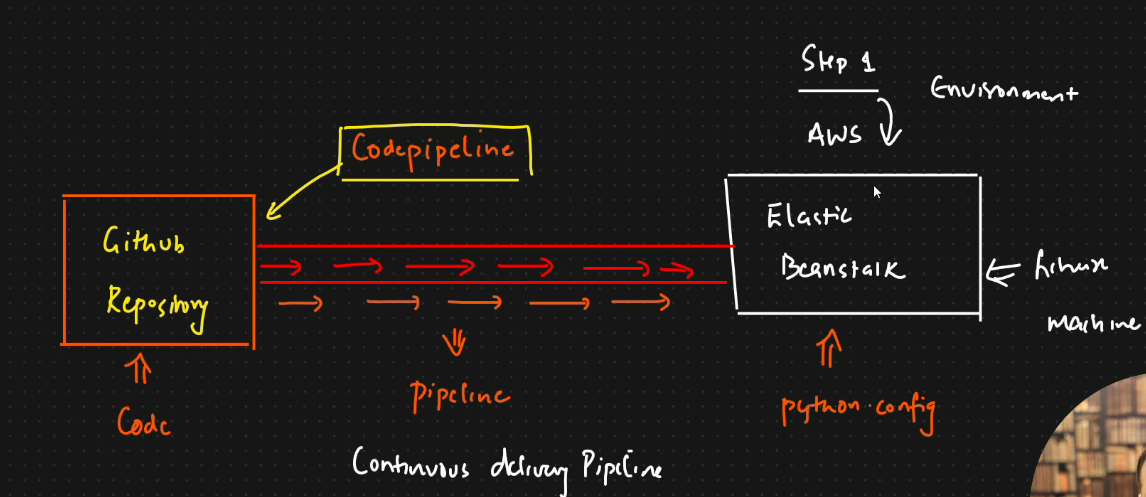 Step 1
Environment
AWS
Codepipeline
Github
Repository
Elastic
Beanstalk
Linux
Machine
Pipeline
Code
python.config
Continuous delivery Pipeline